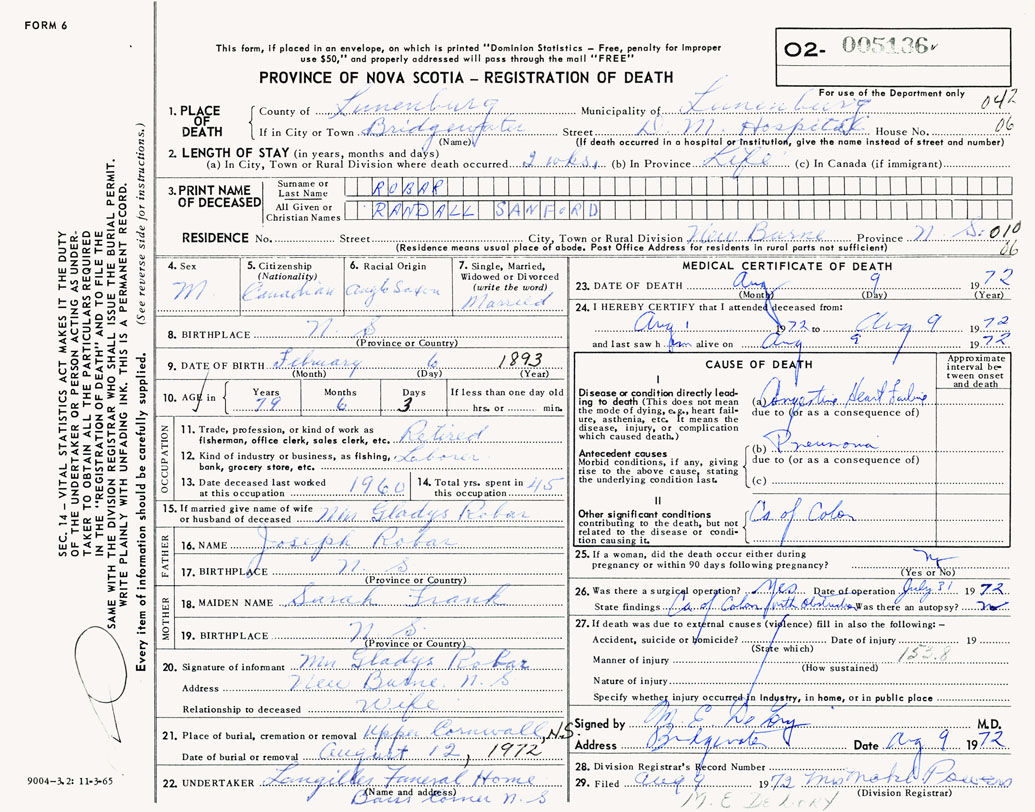 FORM 6
This form, if placed in an envelope, on which is printed "Dominion Statistics – Free, penalty for improper
use $50," and properly addressed will pass through the mail "FREE"
O2- 005136
PROVINCE OF NOVA SCOTIA – REGISTRATION OF DEATH
For use of the Department only
042
06
1. PLACE OF DEATH
County of Lunenburg Municipality of Lunenburg
If in City or Town Bridgewater Street D. M. Hospital House No.
(Name) (If death occurred in a hospital or Institution, give the name instead of street and number)
2. LENGTH OF STAY (in years, months and days)
(a) In City, Town or Rural Division where death occurred 2 wks, (b) In Province Life (c) In Canada (if immigrant)
3. PRINT NAME OF DECEASED
Surname or Last Name ROBAR
All Given or Christian Names RANDALL SANFORD
RESIDENCE No. Street City, Town or Rural Division New Burne Province N. S. 010
06
(Residence means usual place of abode. Post Office Address for residents in rural parts not sufficient)
4. Sex
M.
5. Citizenship
(Nationality)
Canadian
6. Racial Origin
Anglo Saxon
7. Single, Married,
Widowed or Divorced
(write the word)
Married
8. BIRTHPLACE N. S
(Province or Country)
9. DATE OF BIRTH February 6 1893
(Month) (Day) (Year)
10. AGE in
Years Months Days If less than one day old
79 6 3 hrs. or min.
OCCUPATION
11. Trade, profession, or kind of work as
fisherman, office clerk, sales clerk, etc. Retired
12. Kind of industry or business, as fishing,
bank, grocery store, etc. Laborer
13. Date deceased last worked
at this occupation 1960
14. Total yrs. spent in
this occupation 45
15. If married give name of wife
or husband of deceased Mrs Gladys Robar
FATHER
16. NAME Joseph Robar
17. BIRTHPLACE N. S
(Province or Country)
MOTHER
18. MAIDEN NAME Sarah Frank
19. BIRTHPLACE N. S.
(Province or Country)
20. Signature of informant Mrs Gladys Robar
Address New Burne. N. S
Relationship to deceased Wife
21. Place of burial, cremation or removal Upper Cornwall, N.S.
Date of burial or removal August 12, 1972
22. UNDERTAKER Langilles Funeral Home
(Name and address)
Corner N. S
MEDICAL CERTIFICATE OF DEATH
23. DATE OF DEATH Aug 9 1972
(Month) (Day) (Year)
24. I HEREBY CERTIFY that I attended deceased from:
Aug 1 1972 to Aug 9 1972
and last saw him alive on Aug 9 1972
CAUSE OF DEATH
Approximate
interval be-
tween onset
and death
I
Disease or condition directly lead-
ing to death (This does not mean
the mode of dying, e.g., heart fail-
ure, asthenia, etc. It means the
disease, injury, or complication
which caused death.)
(a) Congestive Heart Failure
due to (or as a consequence of)
(b) Pneumonia
due to (or as a consequence of)
(c)
Antecedent causes
Morbid conditions, if any, giving
rise to the above cause, stating
the underlying condition last.
II
Other significant conditions
contributing to the death, but not
related to the disease or condi-
tion causing it.
Ca of Colon
25. If a woman, did the death occur either during
pregnancy or within 90 days following pregnancy?
(Yes or No)
26. Was there a surgical operation? Yes Date of operation July 31 1972
State findings Ca of Colon with obstruction Was there an autopsy? no
27. If death was due to external causes (violence) fill in also the following: –
Accident, suicide or homicide? Date of injury 19
(State which)
153.8
Manner of injury
(How sustained)
Nature of injury
Specify whether injury occurred in Industry, in home, or in public place
Signed by M. E. DeLory M.D.
Address Bridgewater Date Aug 9 1972
28. Division Registrar's Record Number
29. Filed Aug 9 1972 Powers
(Division Registrar)
M. E DELORY
SEC. 14 – VITAL STATISTICS ACT MAKES IT THE DUTY
OF THE UNDERTAKER OR PERSON ACTING AS UNDER-
TAKER TO OBTAIN ALL THE PARTICULARS REQUIRED
IN THE "REGISTRATION OF DEATH" AND TO FILE THE
SAME WITH THE DIVISION REGISTRAR WHO SHALL ISSUE THE BURIAL PERMIT.
WRITE PLAINLY WITH UNFADING INK. THIS IS A PERMANENT RECORD.
Every item of information should be carefully supplied. (See reverse side for instructions.)
9004-3.2: 11-3-65